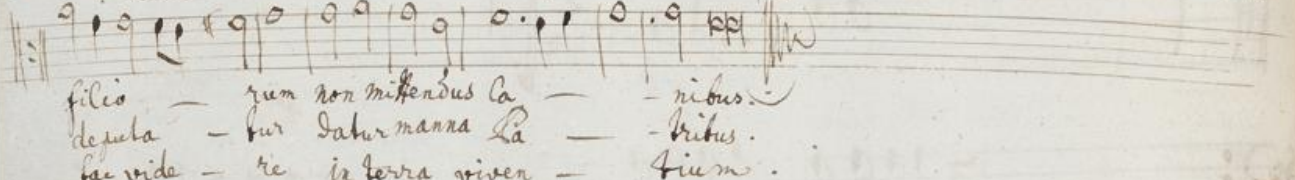 filio — rum non mittendus Ca — - nibus.
deputa - tur datur manna Pa — - tribus.
fac vide - re in terra viven — tium.